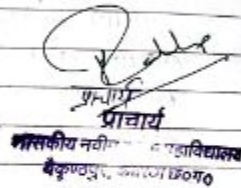 प्राचार्य
प्राचार्य
शासकीय नवीन महाविद्यालय
बैकुण्ठपुर, छ०ग०